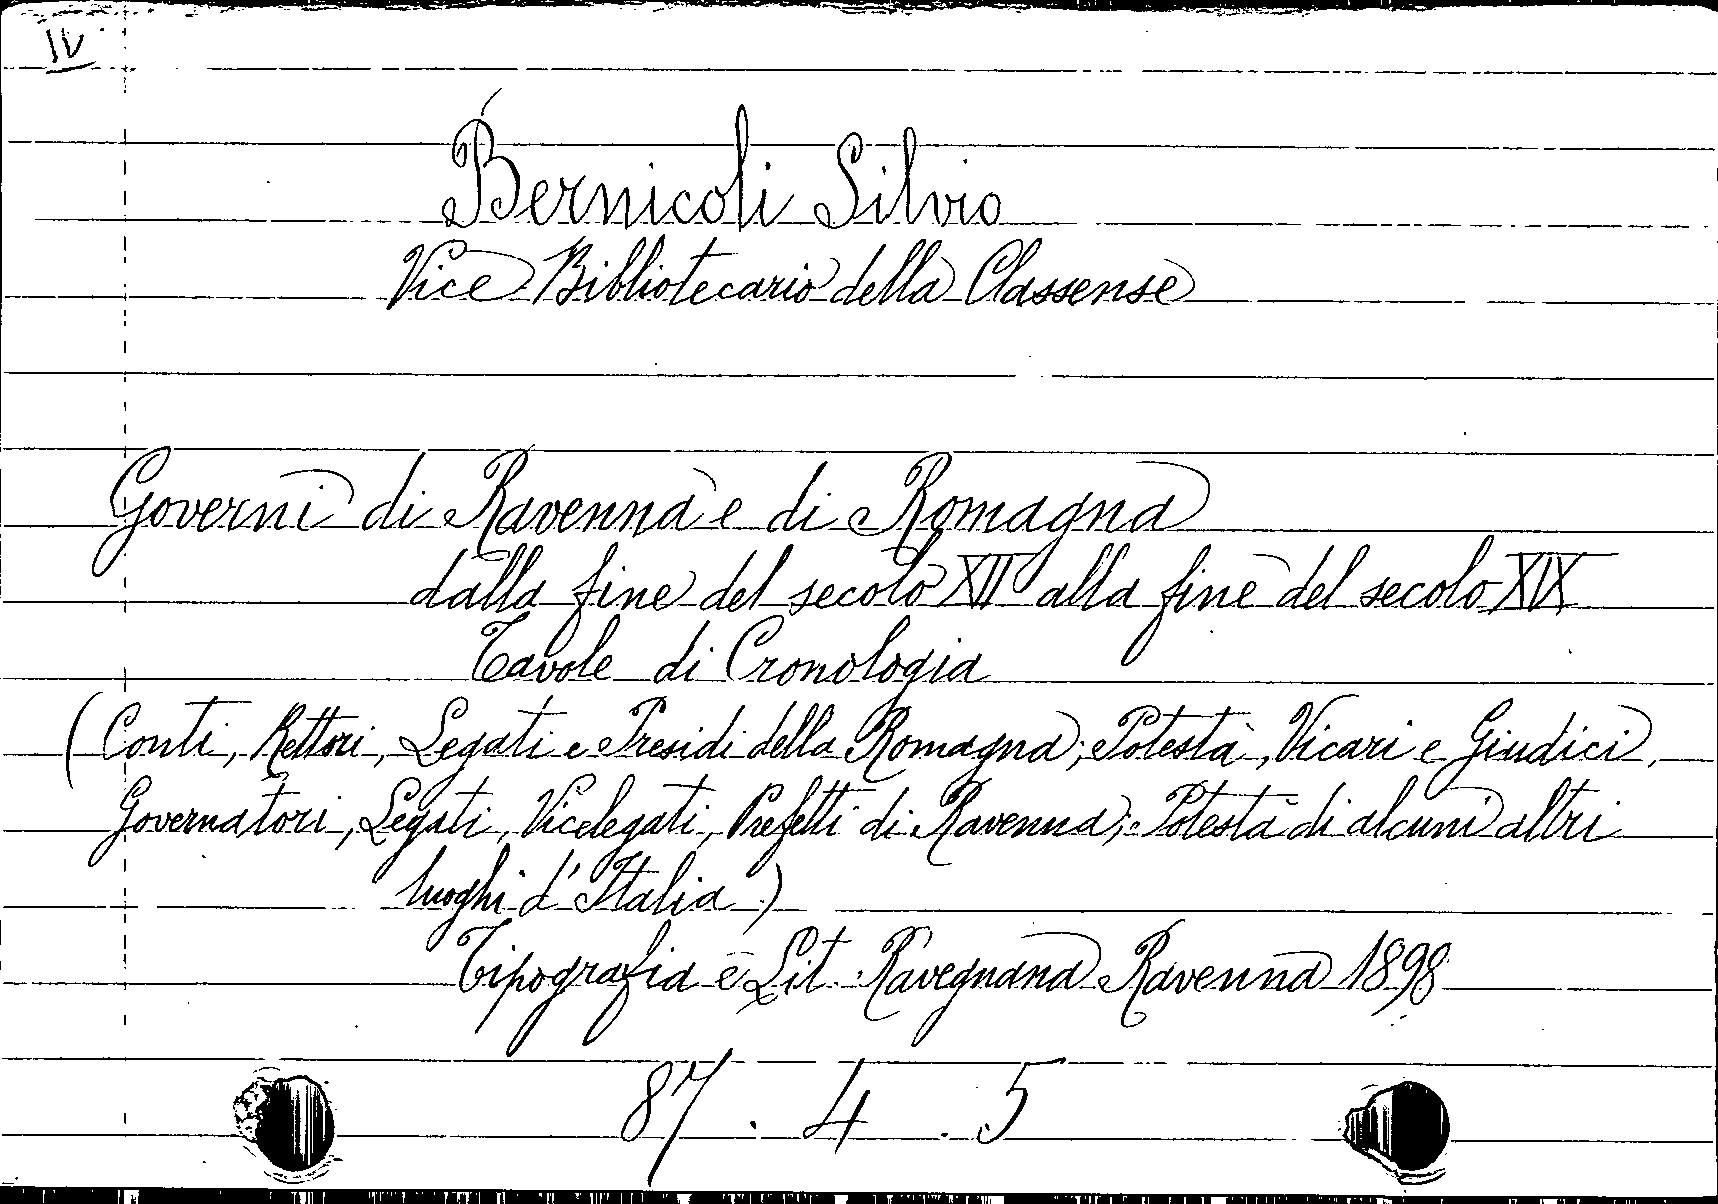 IV
Bernicoli Silvio
Vice Bibliotecario della Classense
Governi di Ravenna e di Romagna
dalla fine del secolo XII alla fine del secolo XIX
Tavole di Cronologia
(Conti, Rettori, Legati e Presidi della Romagna; Potestà, Vicari e Giudici,
Governatori, Legati, Vicelegati, Prefetti di Ravenna; Potestà di alcuni altri
luoghi d'Italia)
Tipografia e Lit. Ravegnana Ravenna 1898
87 . 4 . 5